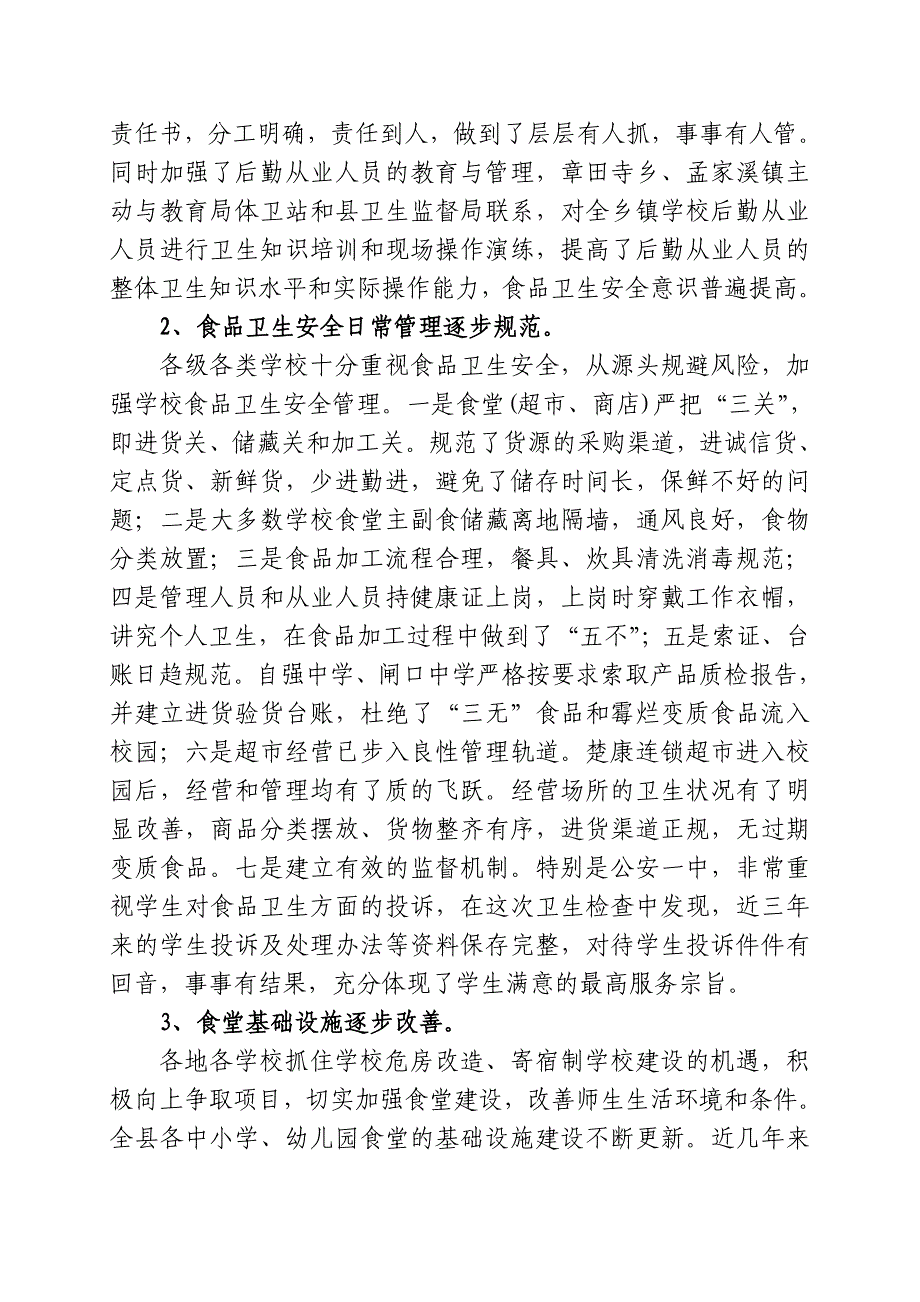 责任书，分工明确，责任到人，做到了层层有人抓，事事有人管。
同时加强了后勤从业人员的教育与管理，章田寺乡、孟家溪镇主
动与教育局体卫站和县卫生监督局联系，对全乡镇学校后勤从业
人员进行卫生知识培训和现场操作演练，提高了后勤从业人员的
整体卫生知识水平和实际操作能力，食品卫生安全意识普遍提高。
2、食品卫生安全日常管理逐步规范。
各级各类学校十分重视食品卫生安全，从源头规避风险，加
强学校食品卫生安全管理。一是食堂(超市、商店)严把“三关”，
即进货关、储藏关和加工关。规范了货源的采购渠道，进诚信货、
定点货、新鲜货，少进勤进，避免了储存时间长，保鲜不好的问
题；二是大多数学校食堂主副食储藏离地隔墙，通风良好，食物
分类放置；三是食品加工流程合理，餐具、炊具清洗消毒规范；
四是管理人员和从业人员持健康证上岗，上岗时穿戴工作衣帽，
讲究个人卫生，在食品加工过程中做到了“五不”；五是索证、台
账日趋规范。自强中学、闸口中学严格按要求索取产品质检报告，
并建立进货验货台账，杜绝了“三无”食品和霉烂变质食品流入
校园；六是超市经营已步入良性管理轨道。楚康连锁超市进入校
园后，经营和管理均有了质的飞跃。经营场所的卫生状况有了明
显改善，商品分类摆放、货物整齐有序，进货渠道正规，无过期
变质食品。七是建立有效的监督机制。特别是公安一中，非常重
视学生对食品卫生方面的投诉，在这次卫生检查中发现，近三年
来的学生投诉及处理办法等资料保存完整，对待学生投诉件件有
回音，事事有结果，充分体现了学生满意的最高服务宗旨。
3、食堂基础设施逐步改善。
各地各学校抓住学校危房改造、寄宿制学校建设的机遇，积
极向上争取项目，切实加强食堂建设，改善师生生活环境和条件。
全县各中小学、幼儿园食堂的基础设施建设不断更新。近几年来